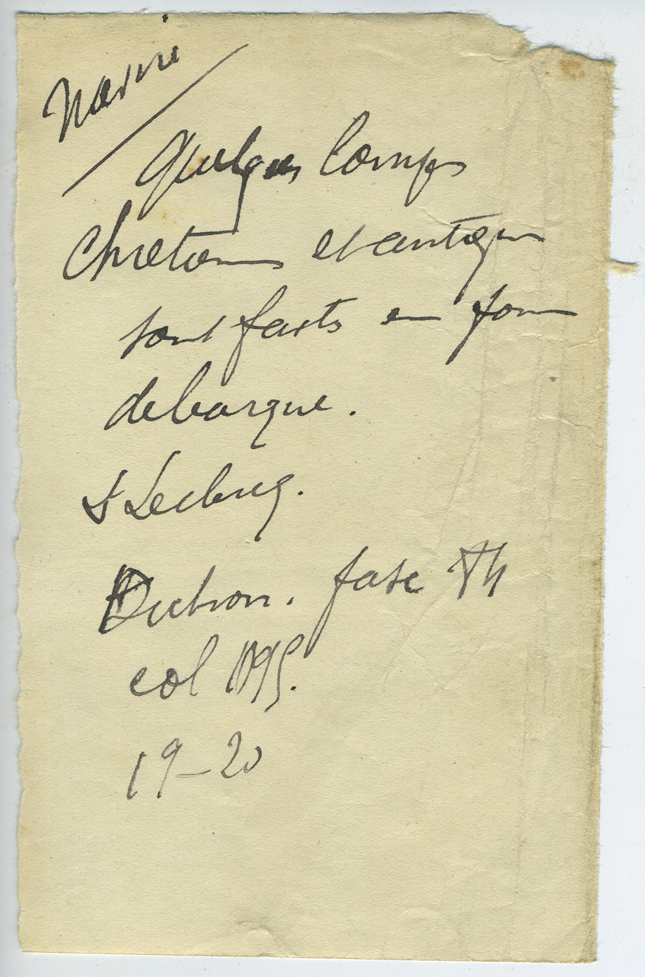 Navire
Quelques lamps
Chretiens et antiques
sont faits en form
de barque.
Leclercq.
Diction. fasc
col 1095.
19-20